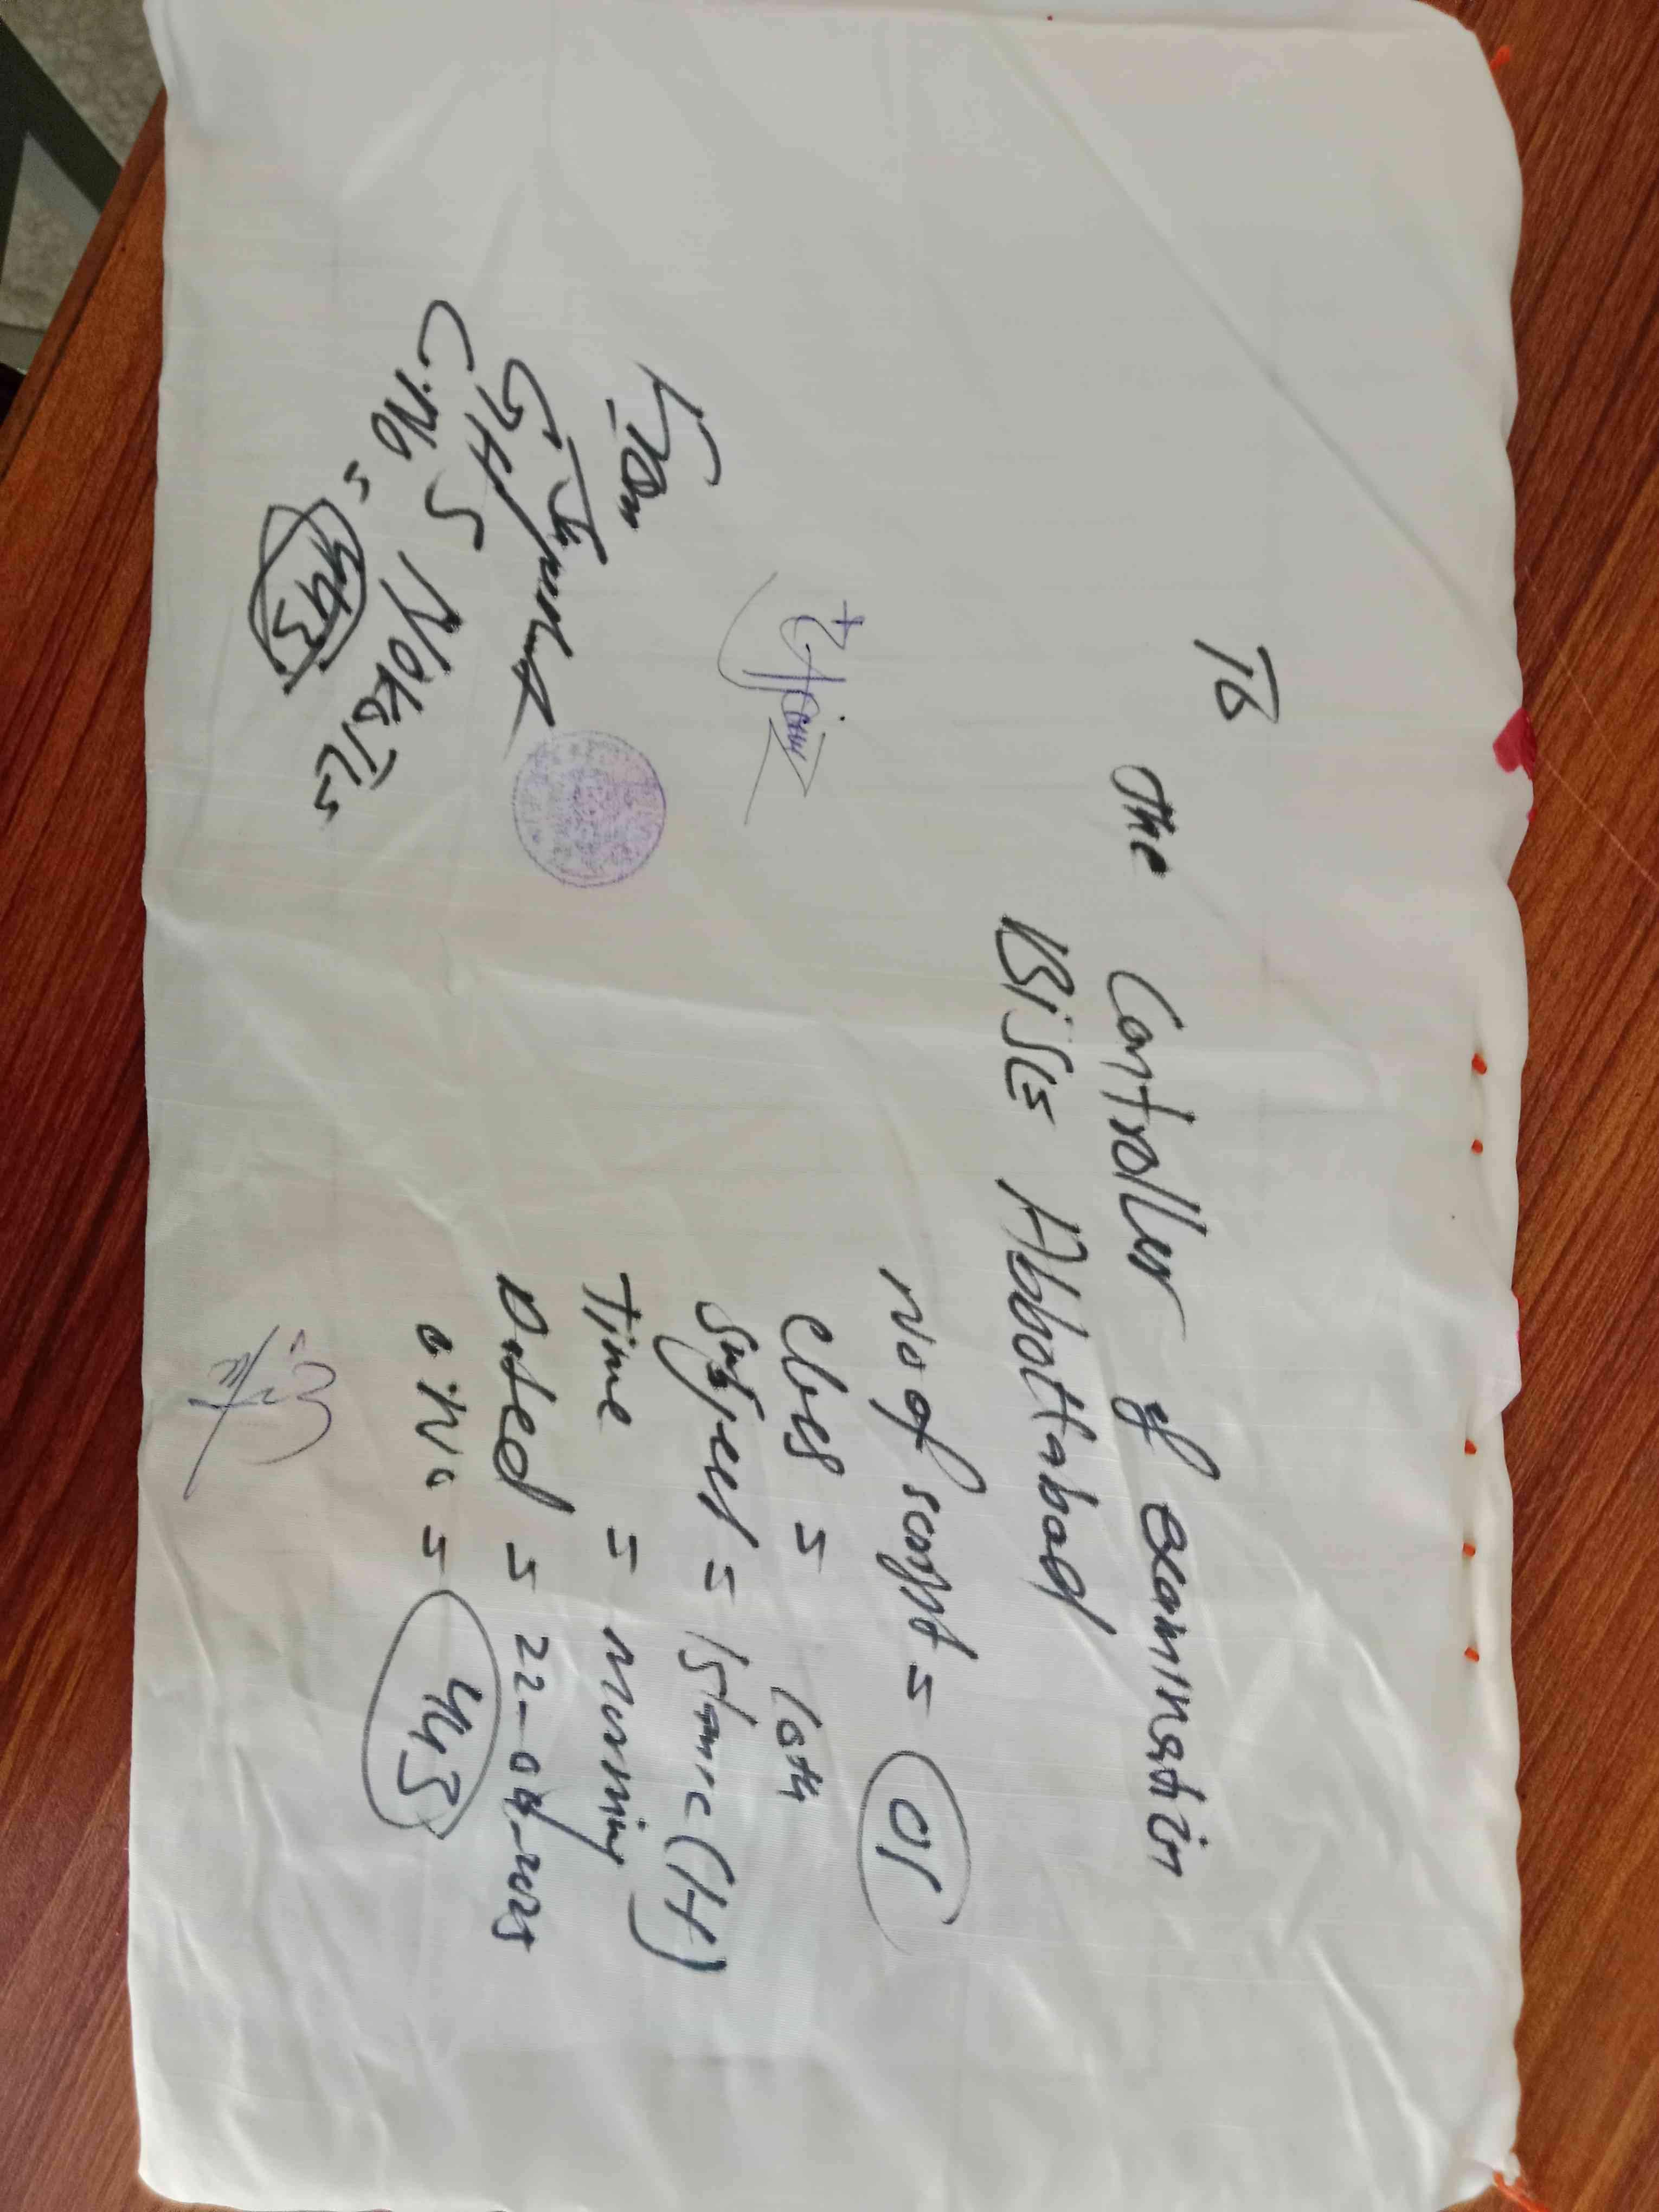 To
the Controller of examinatin
BiSE Abbottabad
No of script = 01
Class = 10th
Subject = Islamic (H)
Time = Morning
Dated = 22-04-2025
C.No = 443
From
GHS
C.No = 443